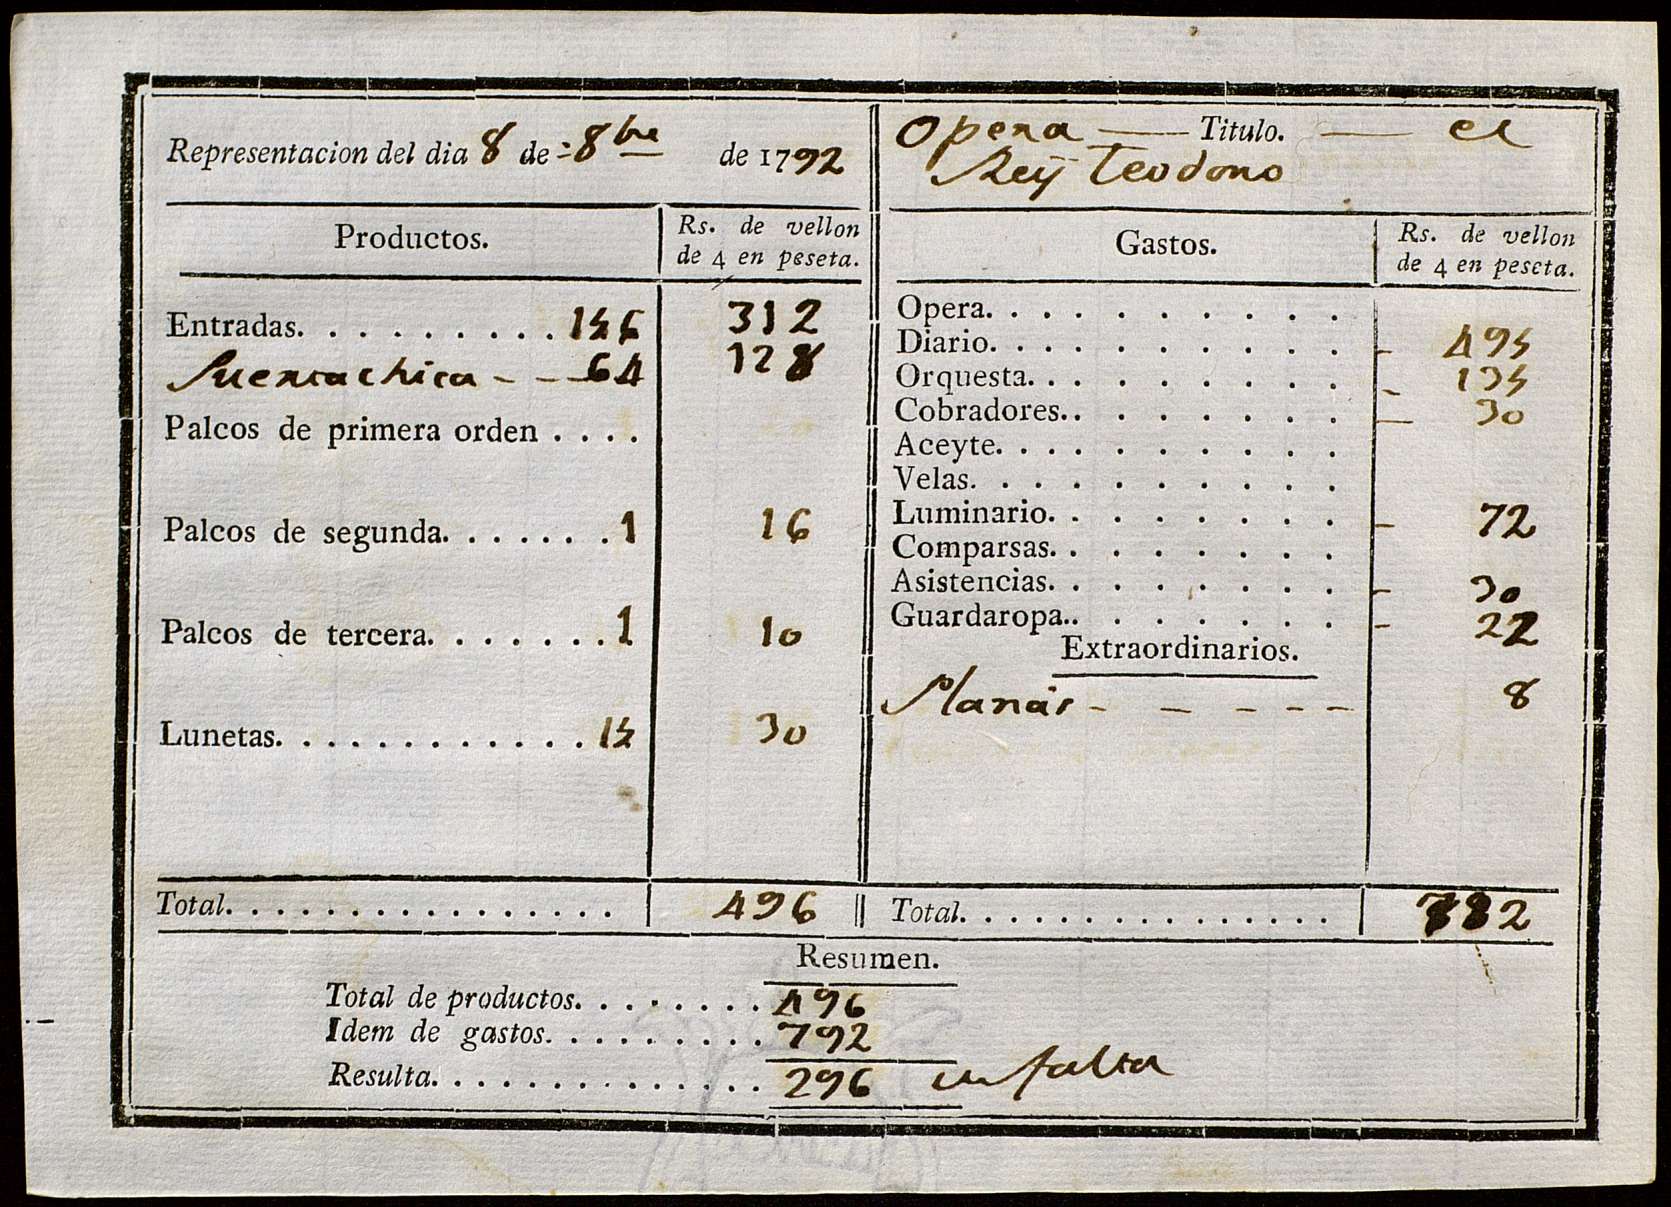 Representacion del dia 8 de 8bre de 1792
Opera — Titulo. — el
Rey Teodoro
Productos. Rs. de vellon de 4 en peseta.
Entradas. . . . . . . . . . 156 312
Puertachica - - - 64 128
Palcos de primera orden . . . .
Palcos de segunda. . . . . . . 1 16
Palcos de tercera. . . . . . . 1 10
Lunetas. . . . . . . . . . . . . 15 30
Total. . . . . . . . . . . . . . . . 496
Gastos. Rs. de vellon de 4 en peseta.
Opera. . . . . . . . . . .
Diario. . . . . . . . . . . - 495
Orquesta. . . . . . . . . - 135
Cobradores.. . . . . . . — 30
Aceyte. . . . . . . . . .
Velas. . . . . . . . . . .
Luminario. . . . . . . . - 72
Comparsas. . . . . . . .
Asistencias. . . . . . . . - 30
Guardaropa.. . . . . . . - 22
Extraordinarios.
- - - - - - 8
Total. . . . . . . . . . . . . . . 792
Resumen.
Total de productos. . . . . . . . 496
Idem de gastos. . . . . . . . . 792
Resulta. . . . . . . . . . . . . . 296 en falta